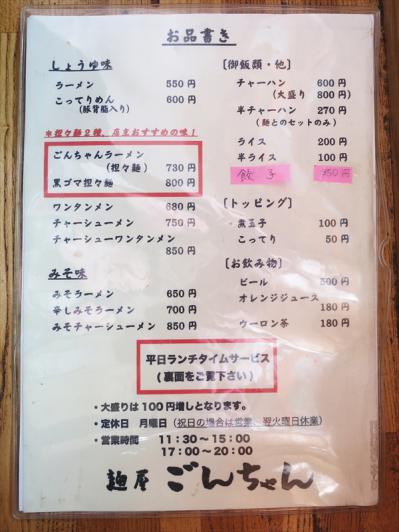 お品書き
しょうゆ味
ラーメン 550円
こってりめん 600円
(豚背脂入り)
*担々麺2種、店主おすすめの味!
ごんちゃんラーメン
(担々麺) 730円
黒ゴマ担々麺 800円
ワンタンメン 680円
チャーシューメン 750円
チャーシューワンタンメン
850円
みそ味
みそラーメン 650円
辛しみそラーメン 700円
みそチャーシューメン 850円
[御飯類・他]
チャーハン 600円
(大盛り 800円)
半チャーハン 270円
(麺とのセットのみ)
ライス 200円
半ライス 100円
餃子 350円
[トッピング]
煮玉子 100円
こってり 50円
[お飲み物]
ビール 500円
オレンジジュース
180円
ウーロン茶 180円
平日ランチタイムサービス
(裏面をご覧下さい)
・大盛りは100円増しとなります。
・定休日 月曜日(祝日の場合は営業、翌火曜日休業)
・営業時間 11:30〜15:00
17:00〜20:00
麺屋 ごんちゃん